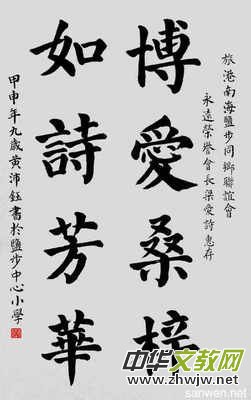 旅港南海鹽步同鄉聯誼會
永遠榮譽會長梁愛詩惠存
博愛桑梓
如詩芳華
甲申年九歲黃沛鈺書於鹽步中心小學
sanwen.net
中华文教网
www.zhwjw.net